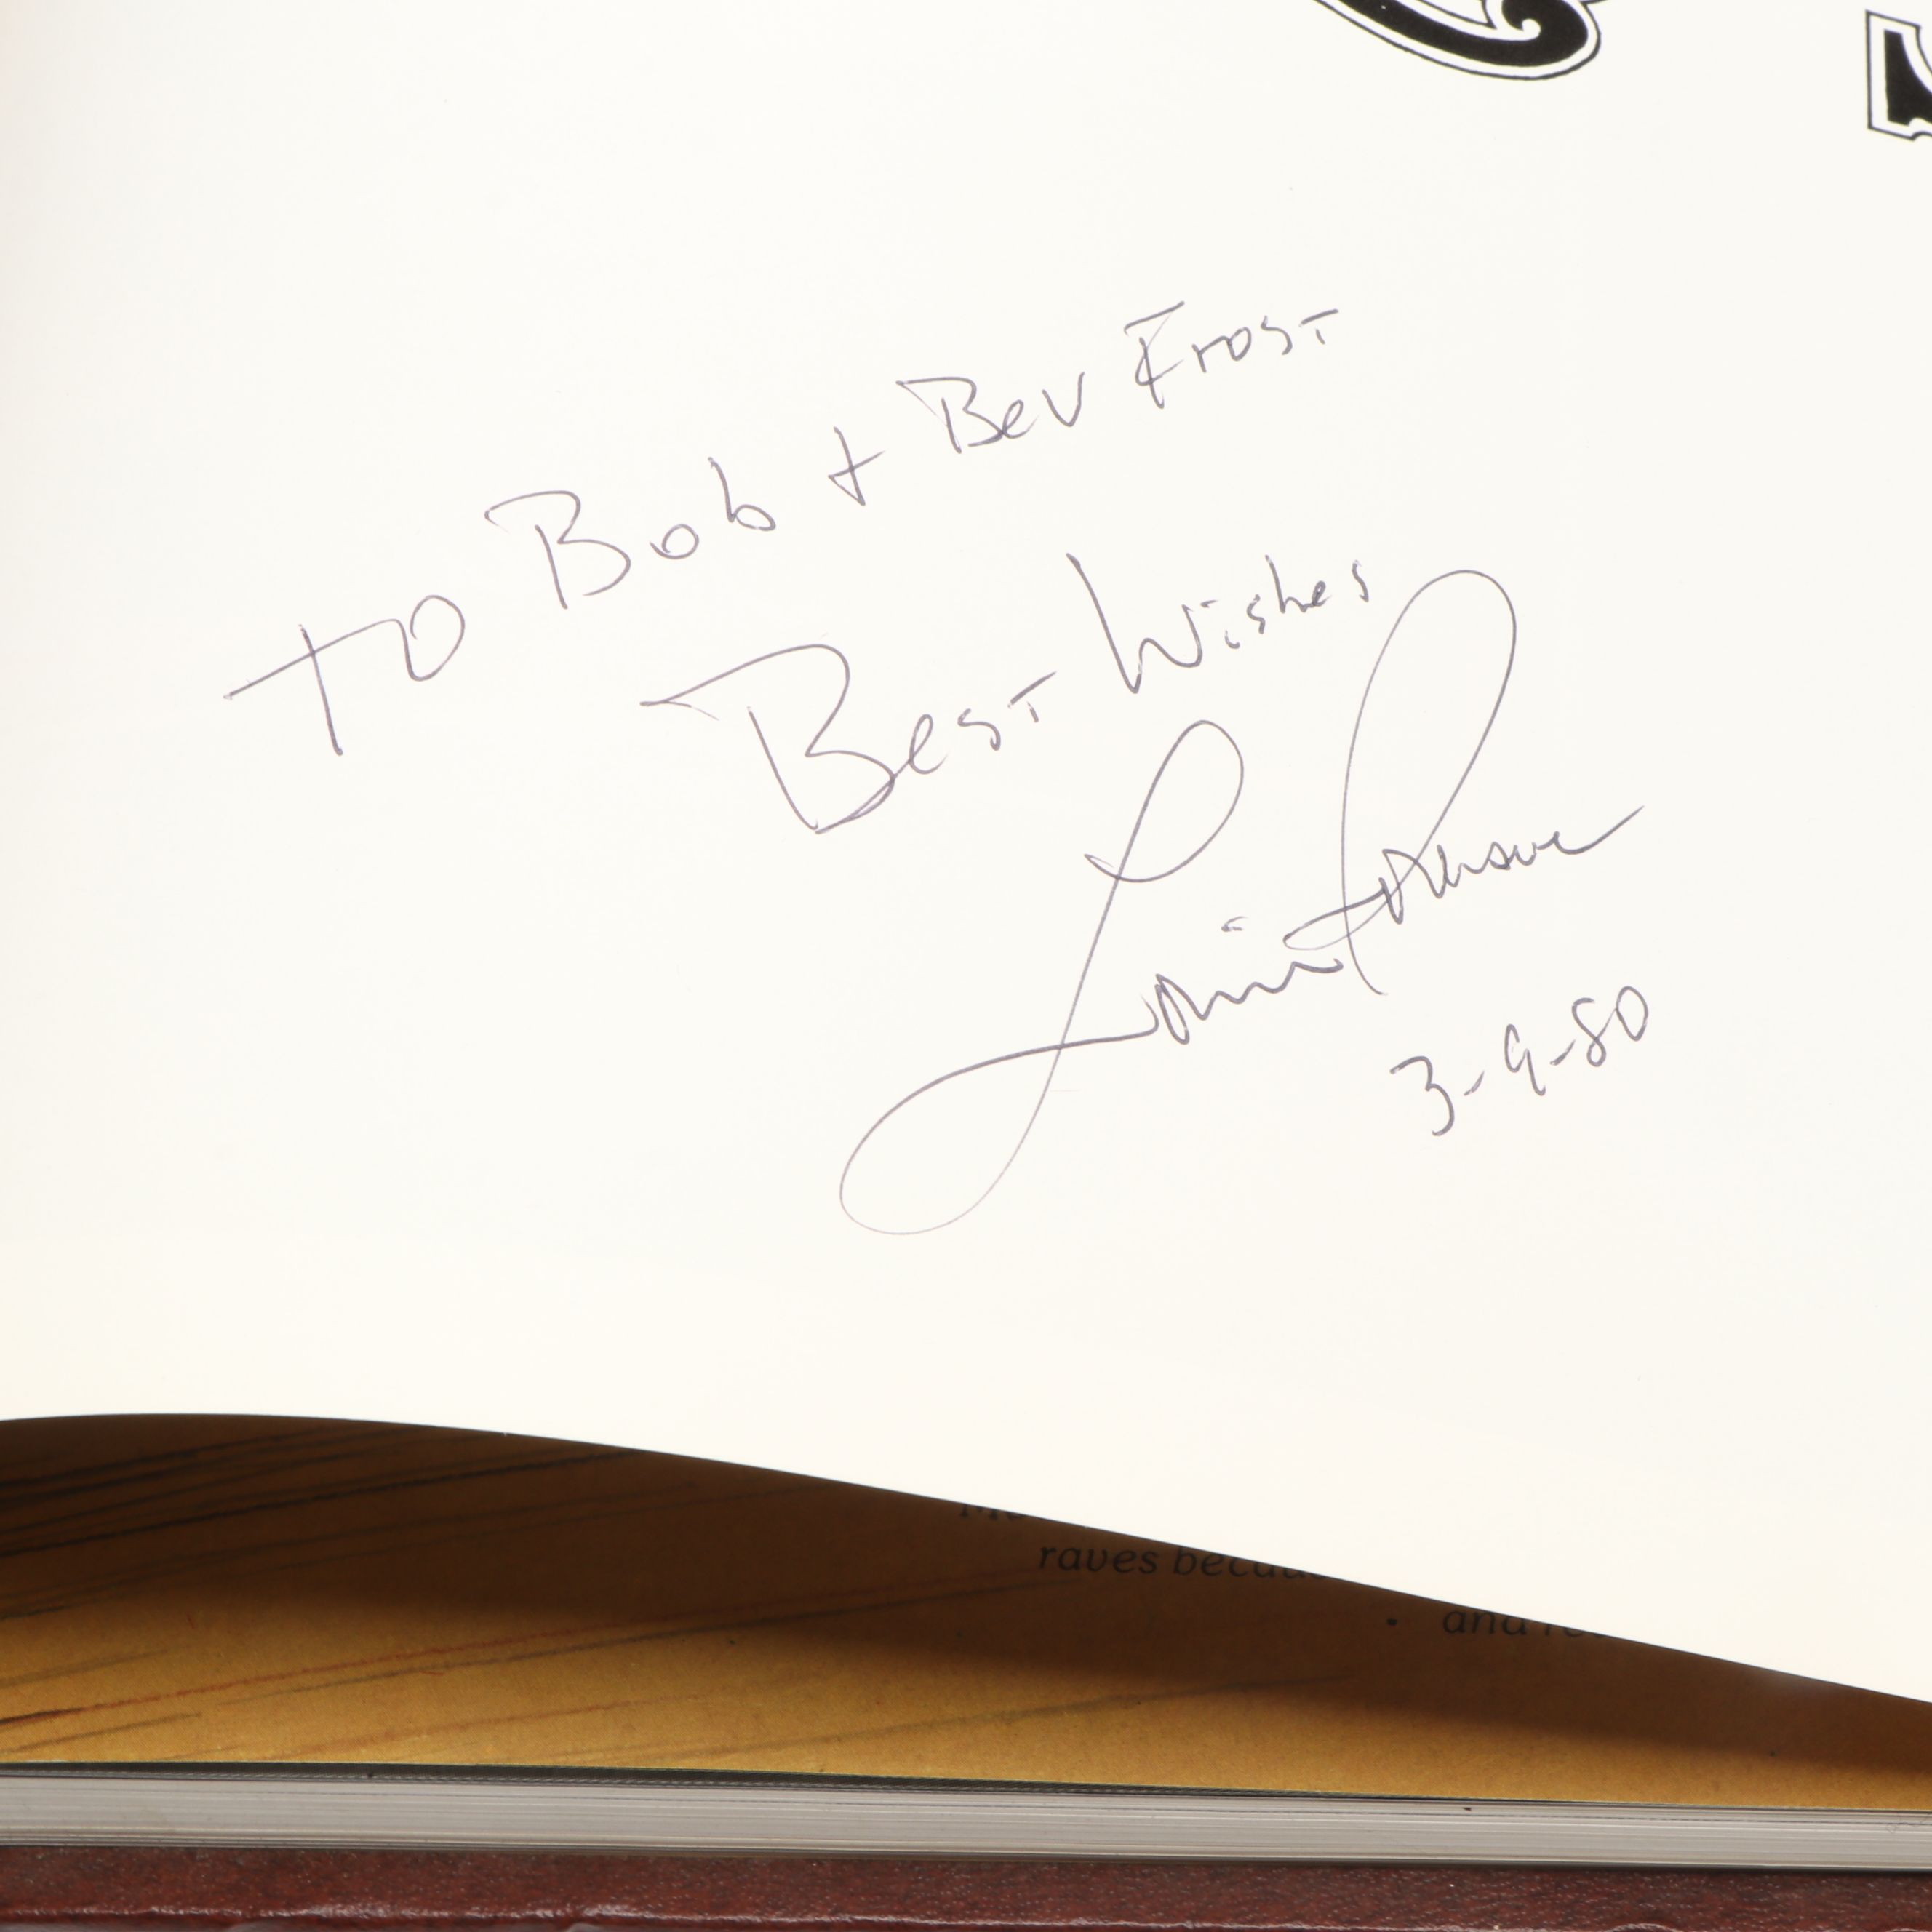 TO Bob + Bev Frost
Best Wishes
3-9-80
raves
and